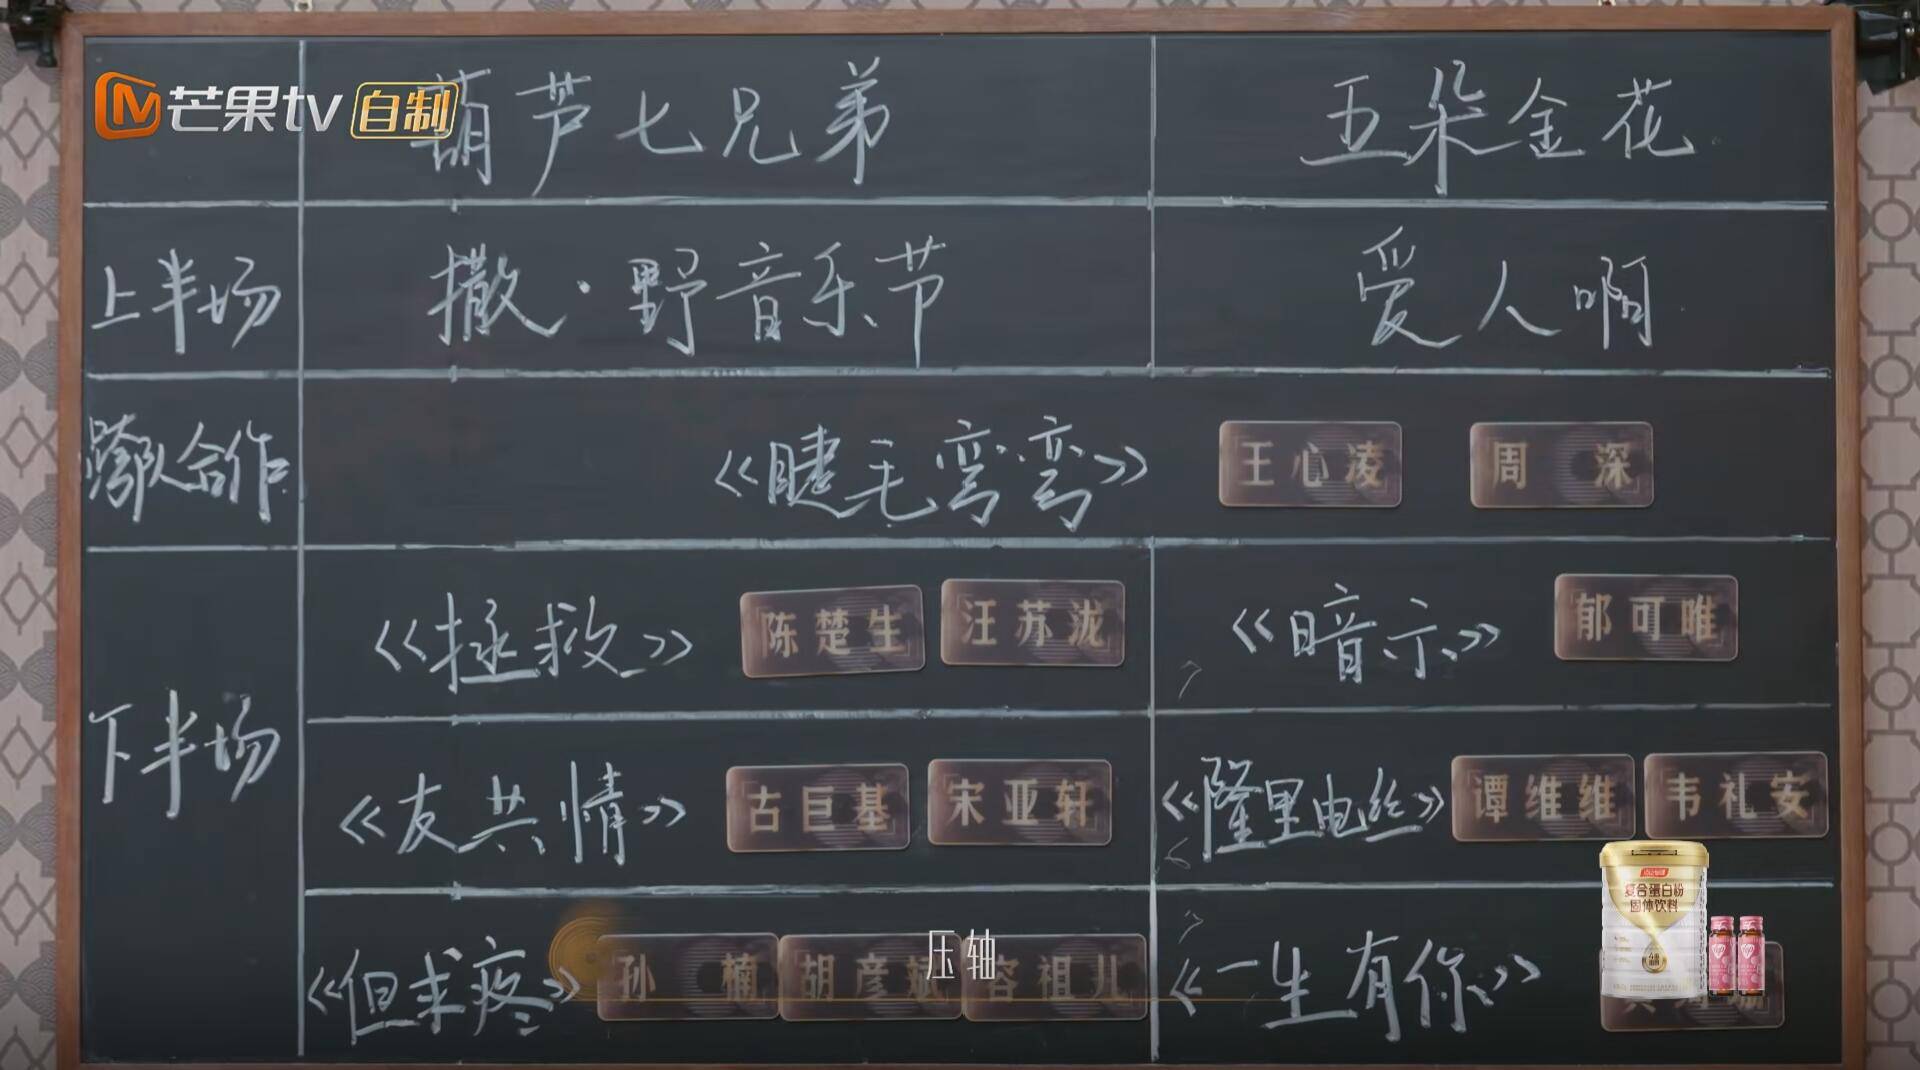 芒果tv 自制
葫芦七兄弟 五朵金花
上半场 撒·野音乐节 爱人啊
跨队合作 《睫毛弯弯》 王心凌 周深
下半场
《拯救》 陈楚生 汪苏泷 《暗示》 郁可唯
《友共情》 古巨基 宋亚轩 《隆里电丝》 谭维维 韦礼安
《但求疼》 孙楠 胡彦斌 容祖儿 《一生有你》
压轴
复合蛋白粉
固体饮料